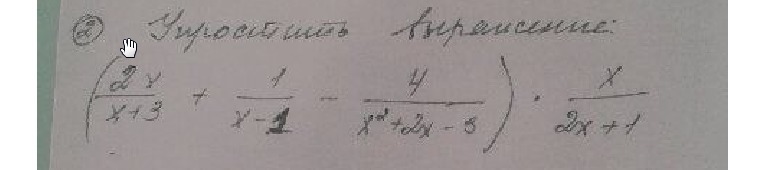 ② Упростить выражение:
(2x/(x+3) + 1/(x-1) - 4/(x²+2x-3)) · x/(2x+1)